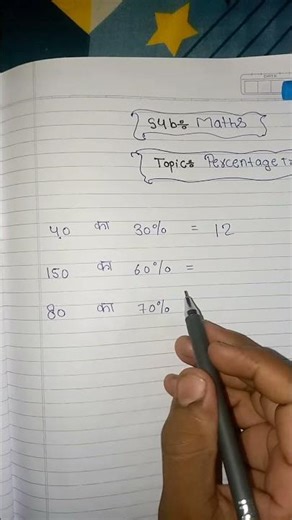 Sub:- Maths
Topic:- Percentage
40 का 30% = 12
150 का 60% =
80 का 70%